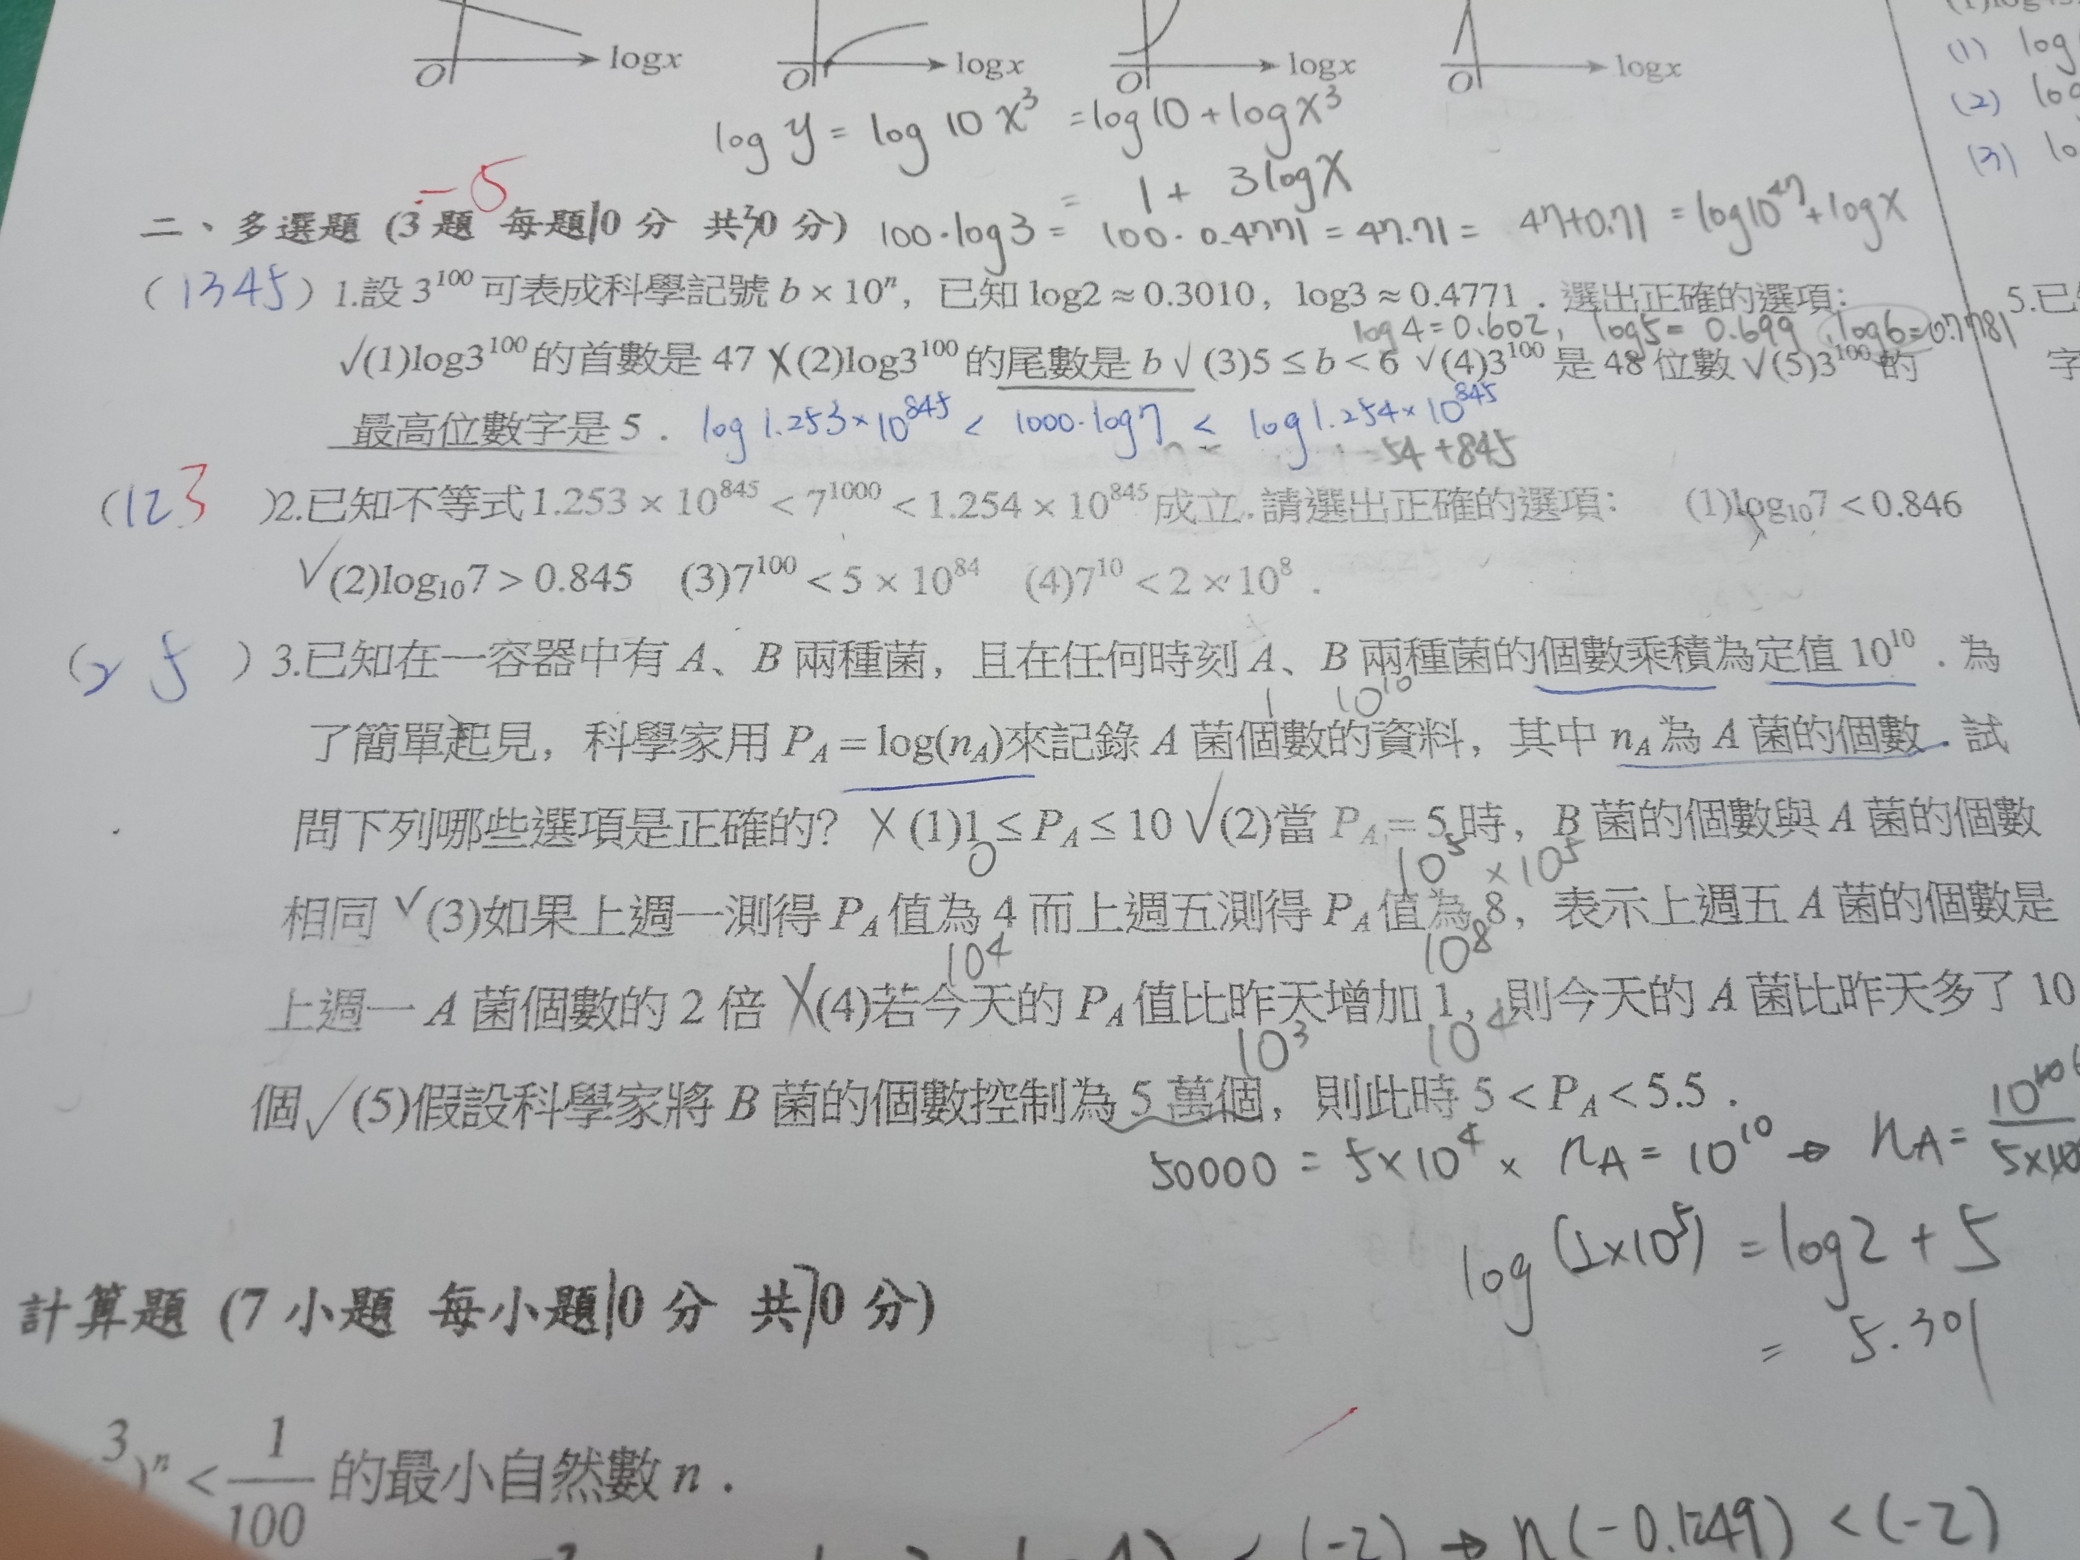 O logx O logx O logx O logx
(1) log
(2) log
(3) lo
log y = log 10 x³ = log 10 + log x³
= 1 + 3 log x
-5
二、多選題 (3 題 每題10 分 共30 分) 100·log3 = 100·0.4771 = 47.71 = 47+0.71 = log10⁴⁷+log x
(1345) 1.設 3¹⁰⁰ 可表成科學記號 b × 10ⁿ, 已知 log2 ≈ 0.3010, log3 ≈ 0.4771 . 選出正確的選項:
log4=0.602, log5=0.699, log6=0.7781
√(1)log3¹⁰⁰ 的首數是 47 X(2)log3¹⁰⁰ 的尾數是 b √(3)5 ≤ b < 6 √(4)3¹⁰⁰ 是 48 位數 √(5)3¹⁰⁰ 的
最高位數字是 5 . log 1.253×10⁸⁴⁵ < 1000·log7 < log 1.254×10⁸⁴⁵
54 + 845
(123 )2.已知不等式1.253 × 10⁸⁴⁵ < 7¹⁰⁰⁰ < 1.254 × 10⁸⁴⁵ 成立.請選出正確的選項: (1)log₁₀7 < 0.846
√(2)log₁₀7 > 0.845 (3)7¹⁰⁰ < 5 × 10⁸⁴ (4)7¹⁰ < 2 × 10⁸ .
(2 5 ) 3.已知在一容器中有 A、B 兩種菌, 且在任何時刻 A、B 兩種菌的個數乘積為定值 10¹⁰ . 為
1 10¹⁰
了簡單起見, 科學家用 P_A = log(n_A)來記錄 A 菌個數的資料, 其中 n_A 為 A 菌的個數 . 試
問下列哪些選項是正確的? X (1)1 ≤ P_A ≤ 10 √(2)當 P_A = 5 時, B 菌的個數與 A 菌的個數
0 10⁵ × 10⁵
相同 √(3)如果上週一測得 P_A 值為 4 而上週五測得 P_A 值為 8, 表示上週五 A 菌的個數是
10⁴ 10⁸
上週一 A 菌個數的 2 倍 X(4)若今天的 P_A 值比昨天增加 1, 則今天的 A 菌比昨天多了 10
10³ 10⁴
個 √(5)假設科學家將 B 菌的個數控制為 5 萬個, 則此時 5 < P_A < 5.5 .
50000 = 5×10⁴ × n_A = 10¹⁰ → n_A =
log (2×10⁵) = log2 + 5
= 5.301
計算題 (7 小題 每小題10 分 共70 分)
3 )ⁿ < 1/100 的最小自然數 n .
< (-2) → n(-0.1249) < (-2)
5.已
字